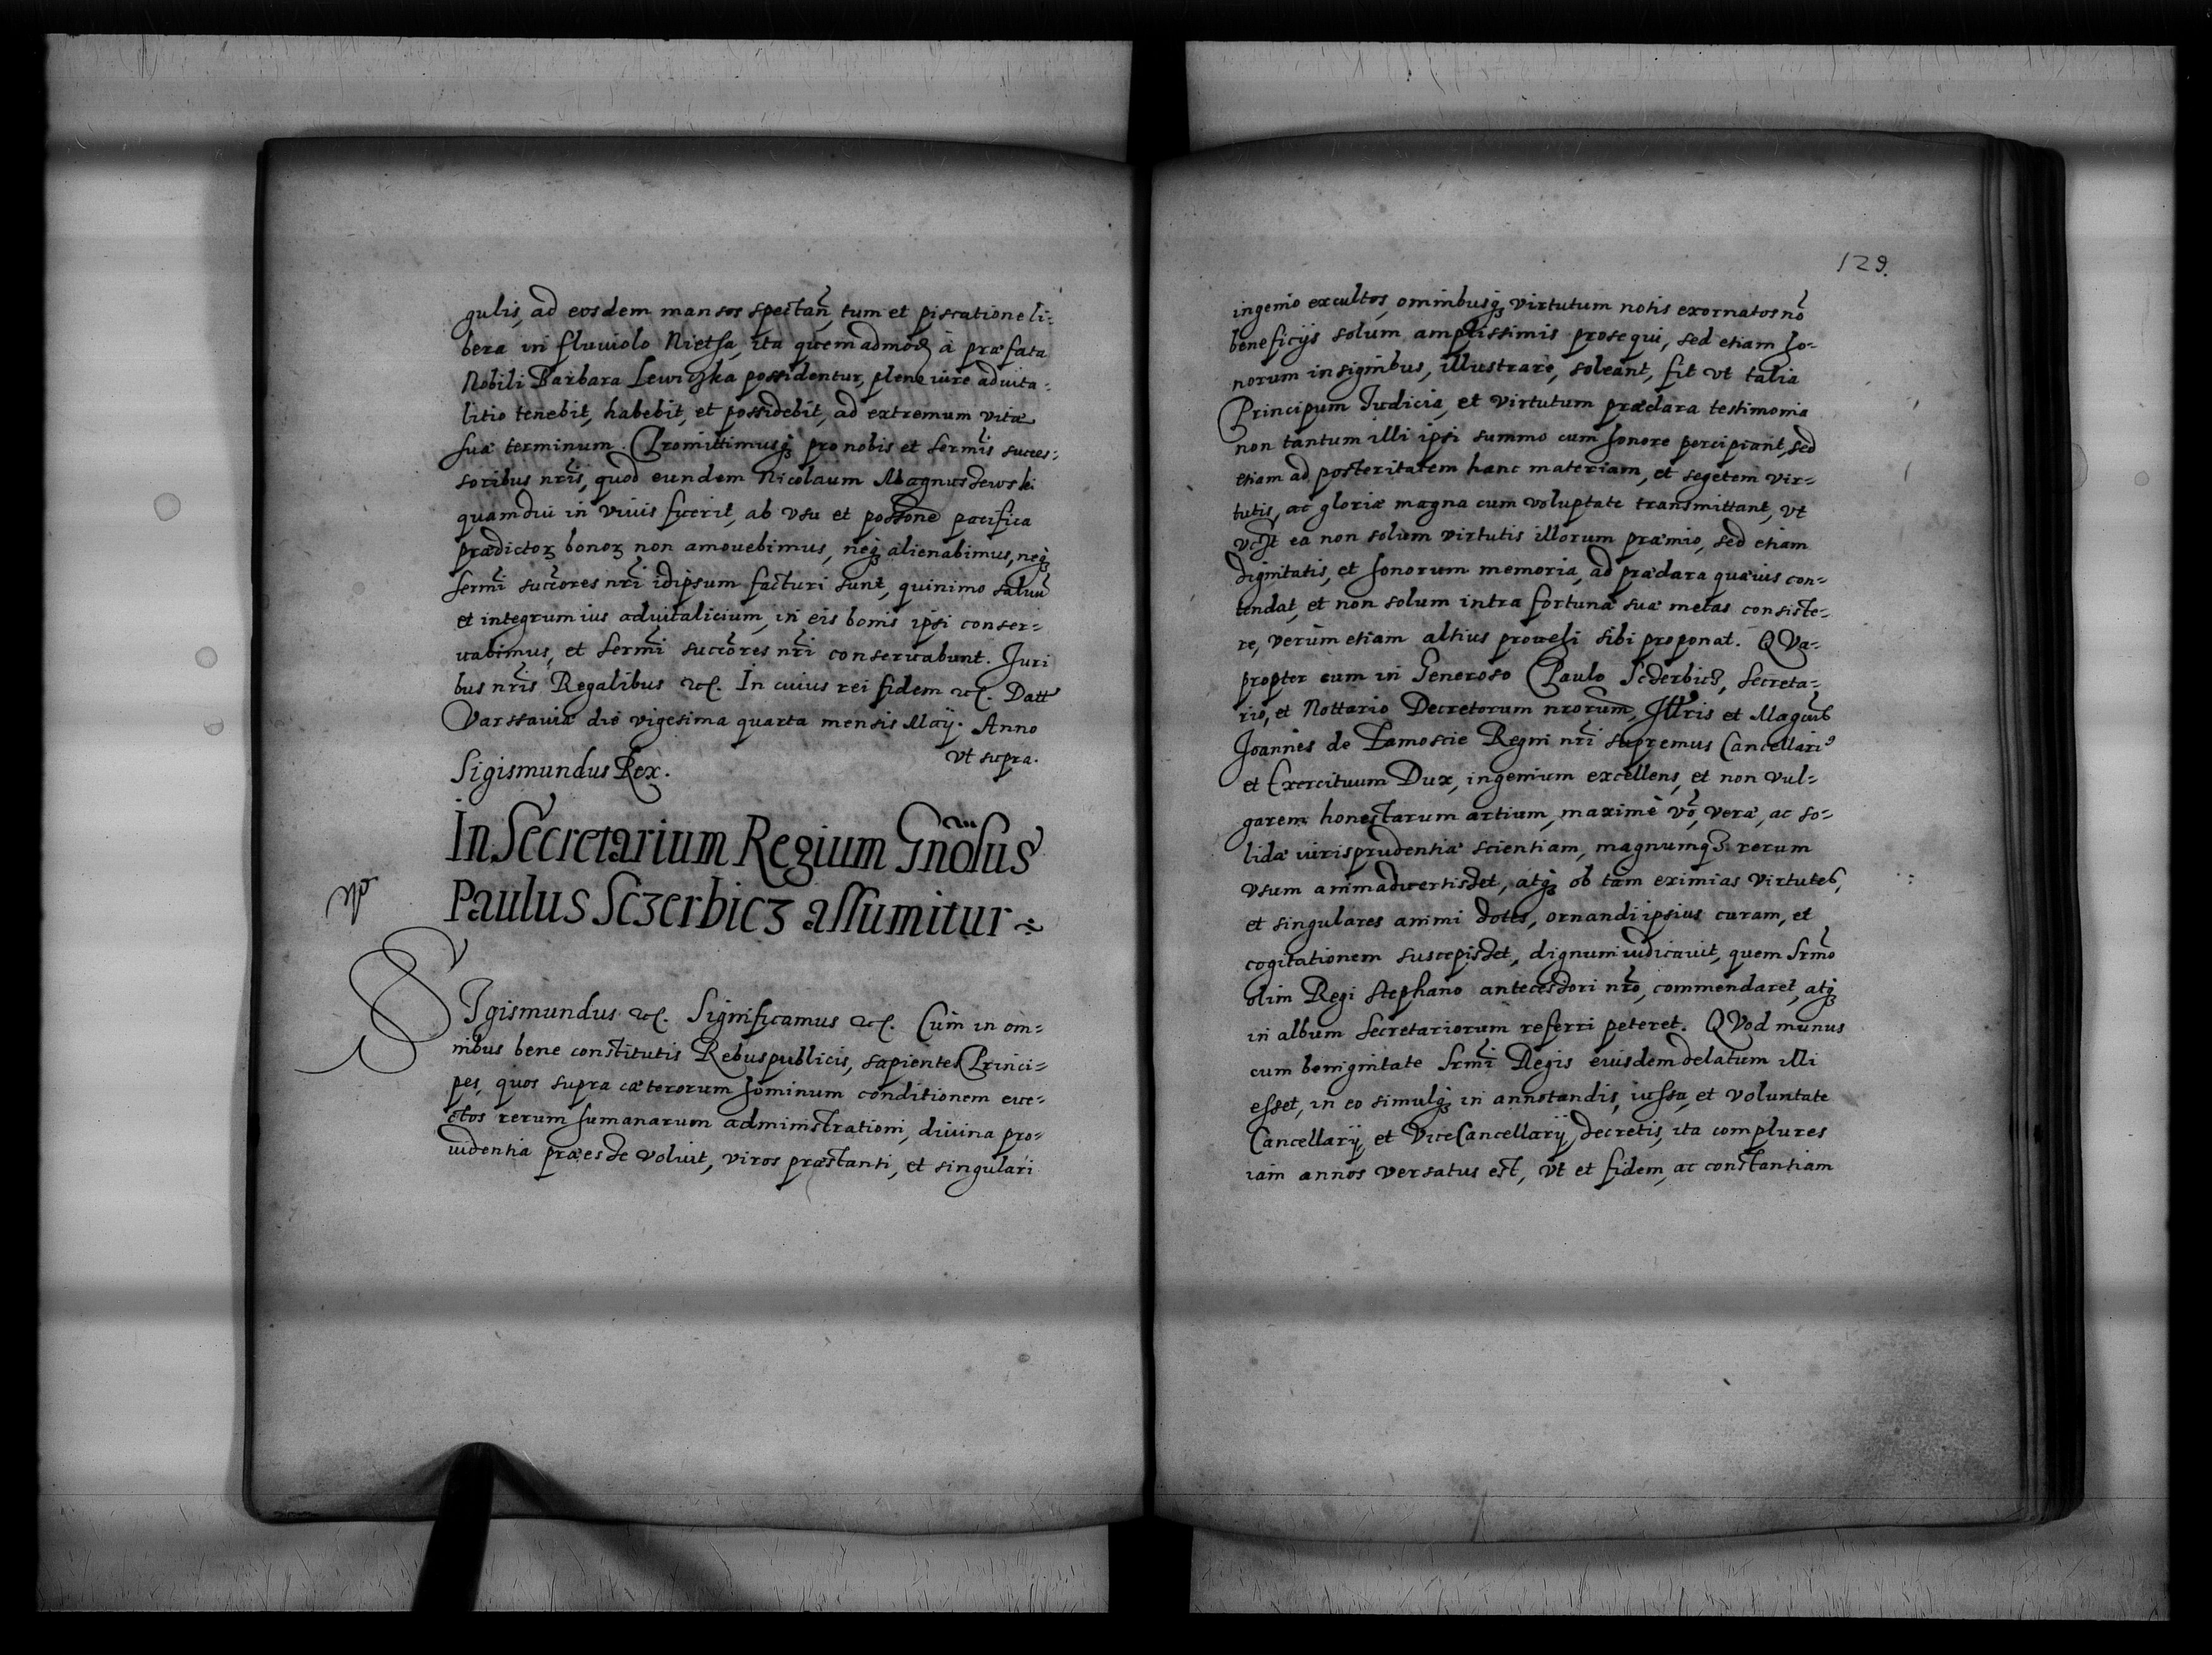 gulis, ad eosdem mansos spectan̄, tum et piscatione li-
bera in fluuiolo Nietsa, ita quemadmod̄ à præfata
Nobili Barbara Lewiczka possidentur, plene iure aduita-
litio tenebit, habebit, et possidebit, ad extremum vitæ
suæ terminum. Promittimusq₃ pro nobis et sermis̄ succes-
soribus nrīs, quod eundem Nicolaum Magnusdewski
quamdiu in viuis fuerit, ab vsu et possone pacifica
prædictoꝝ bonoꝝ non amouebimus, neq₃ alienabimus, neq₃
sermī succōres nrī idipsum facturi sunt, quinimo saluū
et integrum ius aduitalicium, in eis bonis ipsi conser-
uabimus, et sermī succōres nrī conseruabunt. Juri
bus nrīs Regalibus etc. In cuius rei fidem etc. Datt
Varssauiæ die vigesima quarta mensis Maÿ. Anno
vt supra.
Sigismundus Rex.
In Secretarium Regium Gnōsus
Paulus Sczerbicz assumitur
SIgismundus etc. Significamus etc. Cum in om-
nibus bene constitutis Rebuspublicis, sapientes Princi-
pes, quos supra cæterorum hominum conditionem eue-
ctos rerum humanarum administrationi, diuina pro-
uidentia præesse voluit, viros præstanti, et singulari
129.
ingenio excultos, omnibusq₃ virtutum notis exornatos nō
beneficijs solum amplissimis prosequi, sed etiam ho-
norum insignibus, illustrare, soleant, fit vt talia
Principum Judicia, et virtutum præclara testimonia
non tantum illi ipsi summo cum honore percipiant, sed
etiam ad posteritatem hanc materiam, et segetem vir-
tutis, ac gloriæ magna cum voluptate transmittant, vt
ea non solum virtutis illorum præmio, sed etiam
dignitatis, et honorum memoria, ad præclara quæuis con-
tendat, et non solum intra fortunæ suæ metas consiste-
re, verùm etiam altius prouehi sibi proponat. QVa-
propter cum in Generoso Paulo Sczerbicz, Secreta-
rio, et Nottario Decretorum nrorum, Illris et Magcus
Joannes de Zamoscie Regni nrī supremus Cancellari⁹
et Exercituum Dux, ingenium excellens, et non vul-
garem honestarum artium, maximè vō, veræ, ac so-
lidæ iurisprudentiæ scientiam, magnumq₃ rerum
vsum animaduertisset, atq₃ ob tam eximias virtutes,
et singulares animi dotes, ornandi ipsius curam, et
cogitationem suscepisset, dignum iudicauit, quem Srmō
olim Regi Stephano antecessori nrō, commendaret, atq₃
in album Secretariorum referri peteret. QVod munus
cum benignitate Srmī Regis eiusdem delatum illi
esset, in eo simulq₃ in annotandis, iussu, et voluntate
Cancellarij, et ViceCancellarij, decretis, ita complures
iam annos versatus est, vt et fidem, ac constantiam